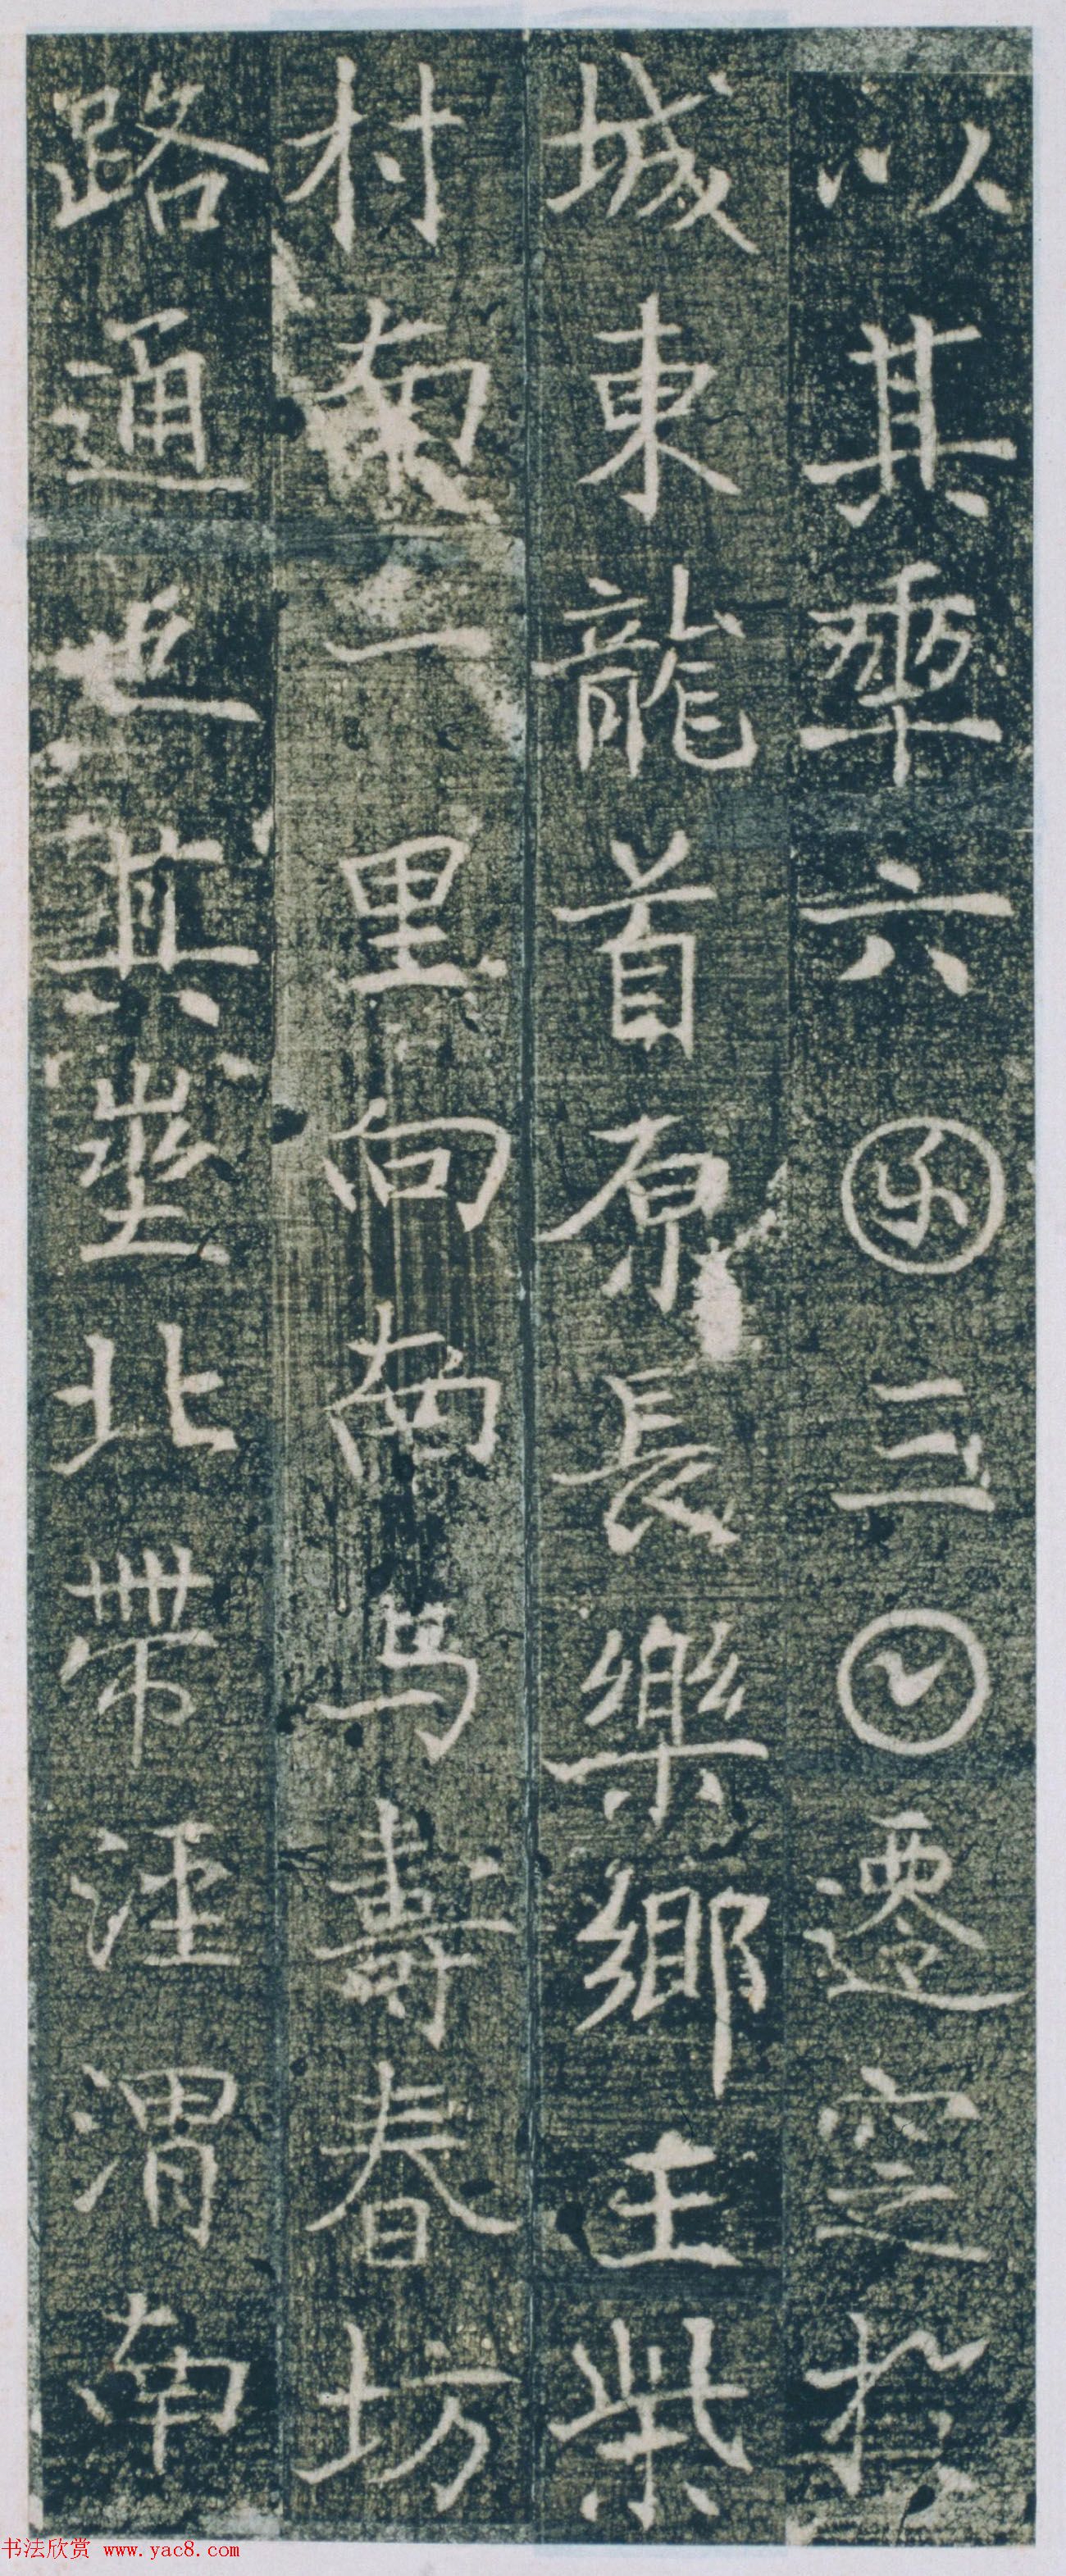 以其𠡦六囝三𡆠遷窆於
城東龍首原長樂鄉王柴
村南一里向南与壽春坊
路通也其埊北帶涇渭南
书法欣赏 www.yac8.com